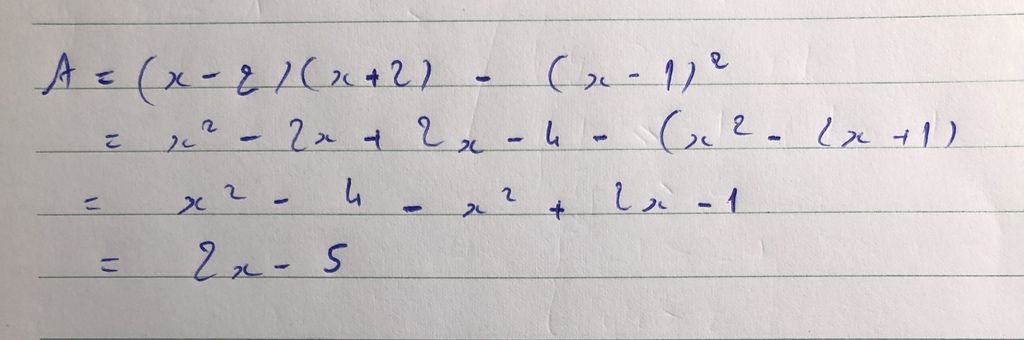 A = (x - 2)(x + 2) - (x - 1)²
= x² - 2x + 2x - 4 - (x² - 2x + 1)
= x² - 4 - x² + 2x - 1
= 2x - 5